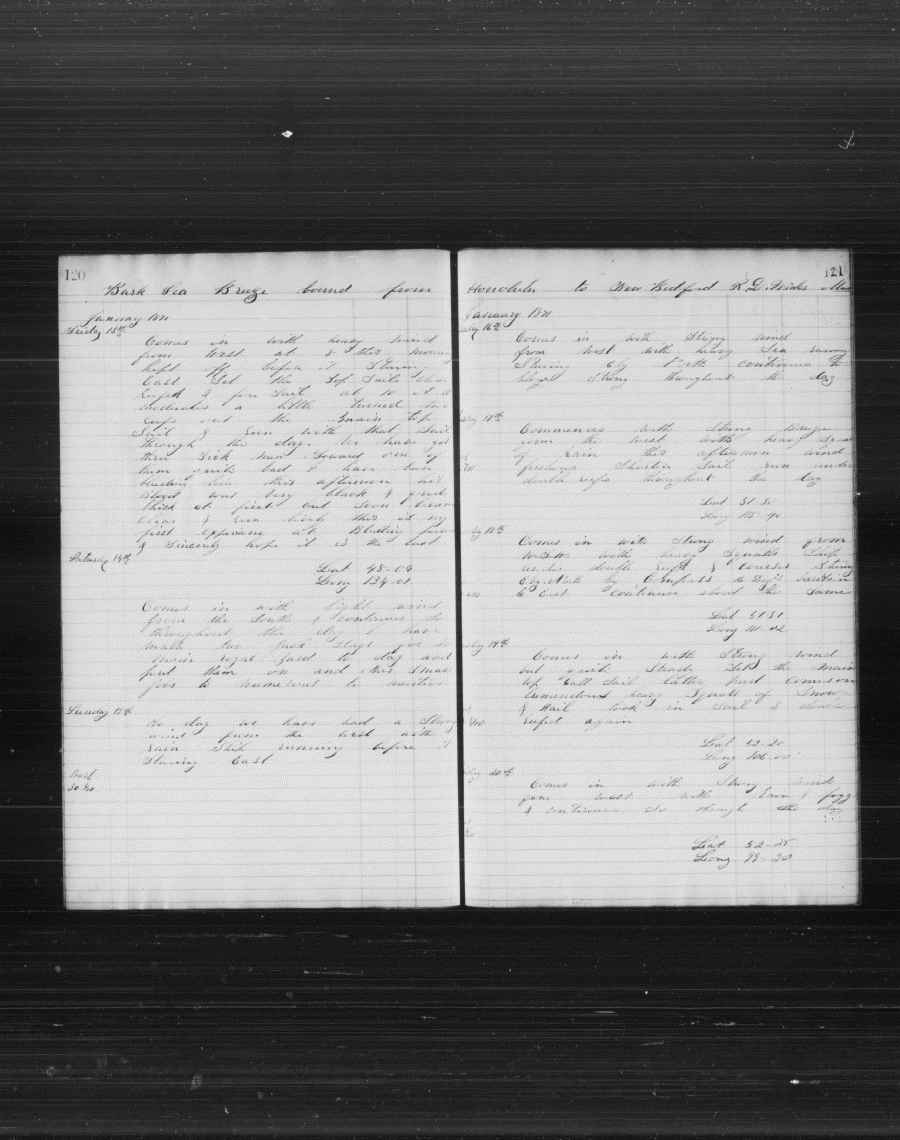 120
Bark Sea Breeze bound from
January 1871
Friday 13th
Comes in with heavy wind
from West at 8 this morning
kept off before it Steering
East Set the Top Sails close
reefed & fore Sail at 10 it
moderates a little turned two
reefs out the main top
Sail & run with that Sail
through the day. We have got
three Sick men foward one of
them quite bad I have been
bleeding him this afternoon his
blood was very black & quite
thick at first but soon became
clear & run freely this is my
first experience at Bleeding
& Sincerely hope it is the last
Lat 48-04
Long 134-01
Saturday 14th
Comes in with light wind
from the South & continues so
throughout the day I have
made two jack Stays for the
main royal yard to day and
put them on and other Small
jobs to numerous to mention
Sunday 15th
To day we have had a Strong
wind from the West with
rain Ship running before it
Steering East
121
Honolulu to New Bedford R. D. Wicks
January 1871
16th
Comes in with Strong wind
from West with heavy Sea running
Steering continues to
blow Strong throughout the day
17th
Commences with Strong Breeze
from the West with heavy
of rain this afternoon wind
freshens Shorten Sail run under
double reefs throughout the day
Lat 51-30
Long 115-40
18th
Comes in with Strong wind from
W.S.W. with heavy Squalls Ship
under double reefs & courses Steering
by Compass
to East Continues about the Same
Lat 51-51
Long 111-02
19th
Comes in with Strong wind
but quite Steady Set the main
top Gall Sail latter part comes on
tremendous heavy Squalls of Snow
& Hail took in Sail & double
reefed again
Lat 52-20
Long 106-00
20th
Comes in with Strong wind
from West with rain & foggy
& continues so through the day
Lat 52-25
Long 99-20